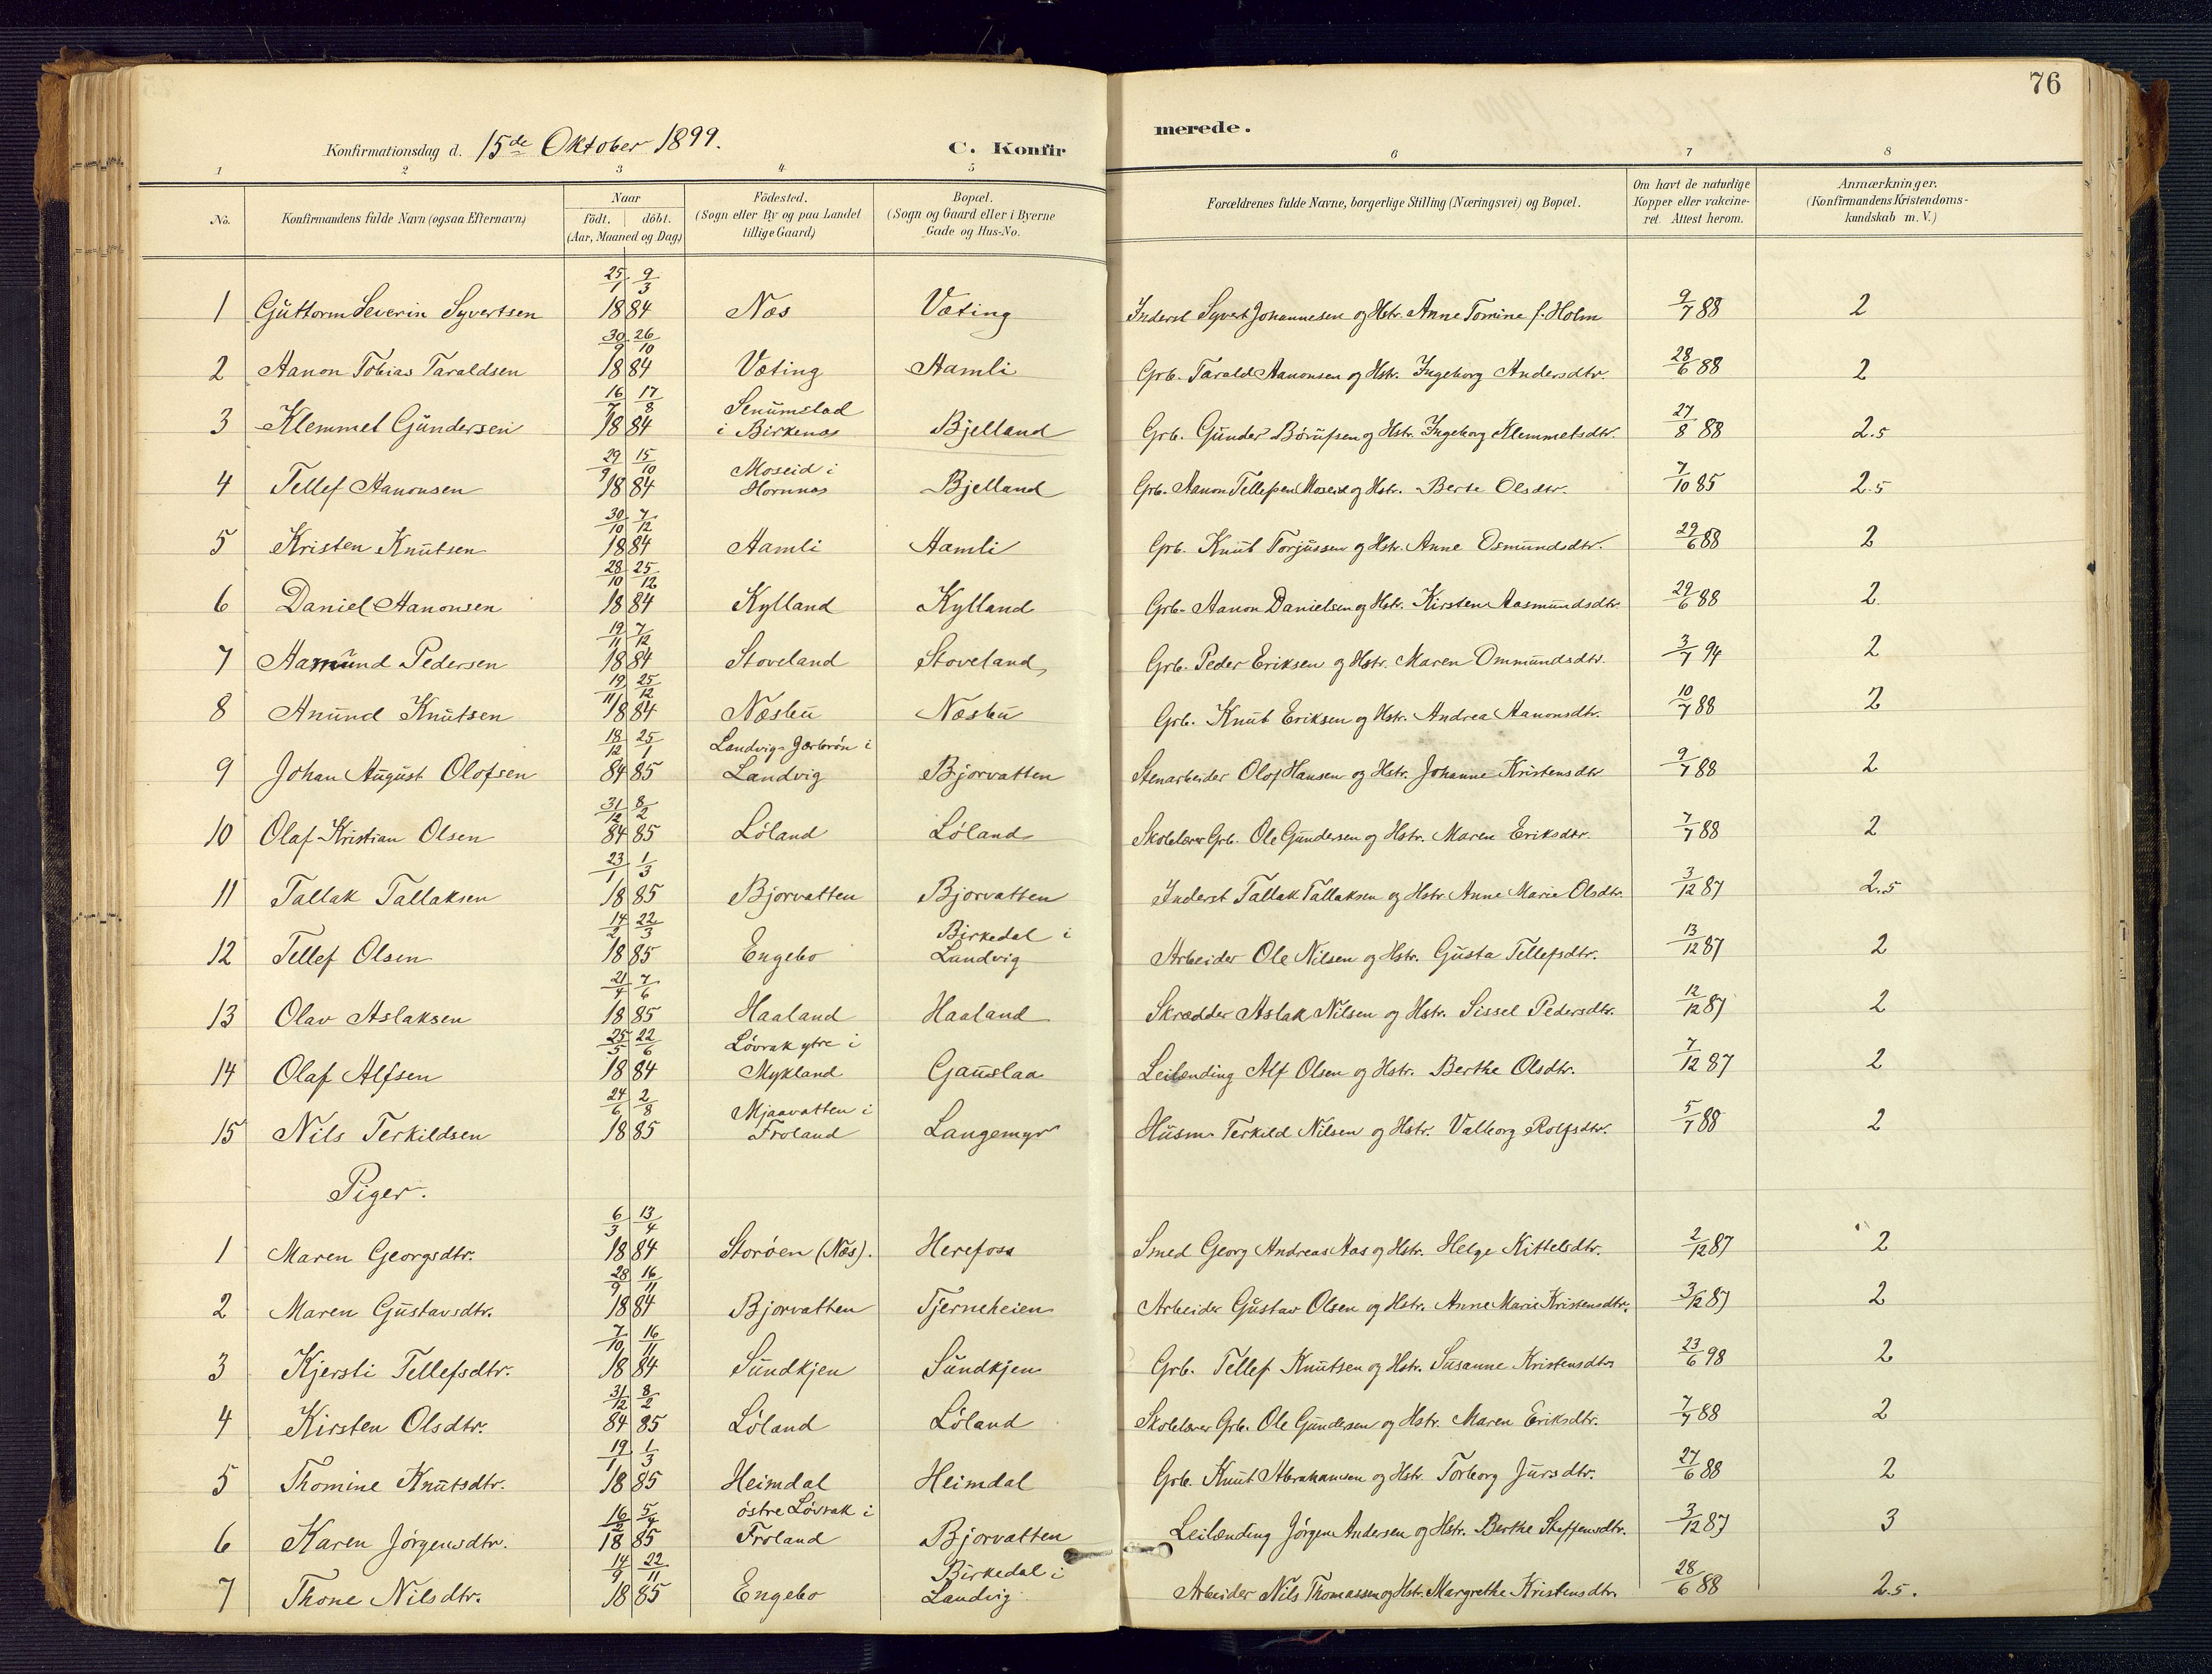 76
Konfirmationsdag d. 15de Oktober 1899. C. Konfir merede.
1 2 3 4 5 6 7 8
No. Konfirmandens fulde Navn (ogsaa Efternavn) Naar födt. döbt. (Aar, Maaned og Dag) Födested. (Sogn eller By og paa Landet tillige Gaard) Bopæl. (Sogn og Gaard eller i Byerne Gade og Hus-No. Forældrenes fulde Navne, borgerlige Stilling (Næringsvei) og Bopæl. Om havt de naturlige Kopper eller vakcineret. Attest herom. Anmærkninger. (Konfirmandens Kristendomskundskab m. V.)
1 Guttorm Severin Syvertsen 25/1 9/3 1884 Næs Væting Inderst Syvert Johannesen og Hstr. Anne Tomine f. Holm 9/7 88 2
2 Aanon Tobias Taraldsen 30/9 26/10 1884 Væting Aamli Grb. Tarald Aanonsen og Hstr. Ingeborg Andersdtr. 28/6 88 2
3 Klemmet Gundersen 16/7 17/8 1884 Senumstad i Birkenæs Bjelland Grb. Gunder Börufsen og Hstr. Ingeborg Klemmetsdtr. 27/8 88 2.5
4 Tellef Aanonsen 29/9 15/10 1884 Moseid i Hornnæs Bjelland Grb. Aanon Tellefsen Moseid og Hstr. Berte Olsdtr. 7/10 85 2.5
5 Kristen Knutsen 30/10 7/12 1884 Aamli Aamli Grb. Knut Torjussen og Hstr. Anne Osmundsdtr. 29/6 88 2
6 Daniel Aanonsen 28/10 25/12 1884 Kylland Kylland Grb. Aanon Danielsen og Hstr. Kirsten Aasmundsdtr. 29/6 88 2
7 Aamund Pedersen 19/11 7/12 1884 Stoveland Stoveland Grb. Peder Eriksen og Hstr. Maren Ommundsdtr. 3/7 94 2
8 Anund Knutsen 19/11 25/12 1884 Næsbu Næsbu Grb. Knut Eriksen og Hstr. Andrea Aanonsdtr. 10/7 88 2
9 Johan August Olofsen 18/12 25/1 84 85 Landvig i Landvig Bjorvatten Stenarbeider Olof Hansen og Hstr. Johanne Kristensdtr 9/7 88 2
10 Olaf Kristian Olsen 31/12 8/2 84 85 Löland Löland Skolelærer Grb. Ole Gundersen og Hstr. Maren Eriksdtr. 7/7 88 2
11 Tallak Tallaksen 23/1 1/3 1885 Bjorvatten Bjorvatten Inderst Tallak Tallaksen og Hstr. Anne Marie Olsdtr. 3/12 87 2.5
12 Tellef Olsen 14/2 22/3 1885 Engebo Birkedal i Landvig Arbeider Ole Nilsen og Hstr. Gusta Tellefsdtr. 13/12 87 2
13 Olav Aslaksen 21/4 7/6 1885 Haaland Haaland Skrædder Aslak Nilsen og Hstr. Sissel Pedersdtr. 12/12 87 2
14 Olaf Alfsen 25/5 22/6 1884 Lövrak ytre i Mykland Gauslaa Leilænding Alf Olsen og Hstr. Berthe Olsdtr. 7/12 87 2
15 Nils Terkildsen 24/6 2/8 1885 Mjaavatten i Froland Langemyr Husm. Terkild Nilsen og Hstr. Valborg Rolfsdtr. 5/7 88 2
Piger.
1 Maren Georgsdtr. 6/3 13/4 1884 Storöen (Næs). Herefoss Smed Georg Andreas Aas og Hstr. Helge Kittelsdtr. 2/12 87 2
2 Maren Gustavsdtr. 28/9 16/11 1884 Bjorvatten Tjerneheien Arbeider Gustav Olsen og Hstr. Anne Marie Kristensdtr. 3/12 87 2
3 Kjersti Tellefsdtr. 7/10 16/11 1884 Sundkjen Sundkjen Grb. Tellef Knutsen og Hstr. Susanne Kristensdtr 23/6 98 2
4 Kirsten Olsdtr. 31/12 8/2 84 85 Löland Löland Skolelærer Grb. Ole Gundersen og Hstr. Maren Eriksdtr. 7/7 88 2
5 Thomine Knutsdtr. 19/1 1/3 1885 Heimdal Heimdal Grb. Knut Abrahamsen og Hstr. Torborg Jursdtr. 27/6 88 2
6 Karen Jörgensdtr. 16/2 5/4 1885 östre Lövrak i Froland Bjorvatten Leilænding Jörgen Andersen og Hstr. Berthe Steffensdtr. 3/12 87 3
7 Thone Nilsdtr. 14/9 22/11 1885 Engebo Birkedal i Landvig Arbeider Nils Thomassen og Hstr. Margrethe Kristensdtr. 28/6 88 2.5.